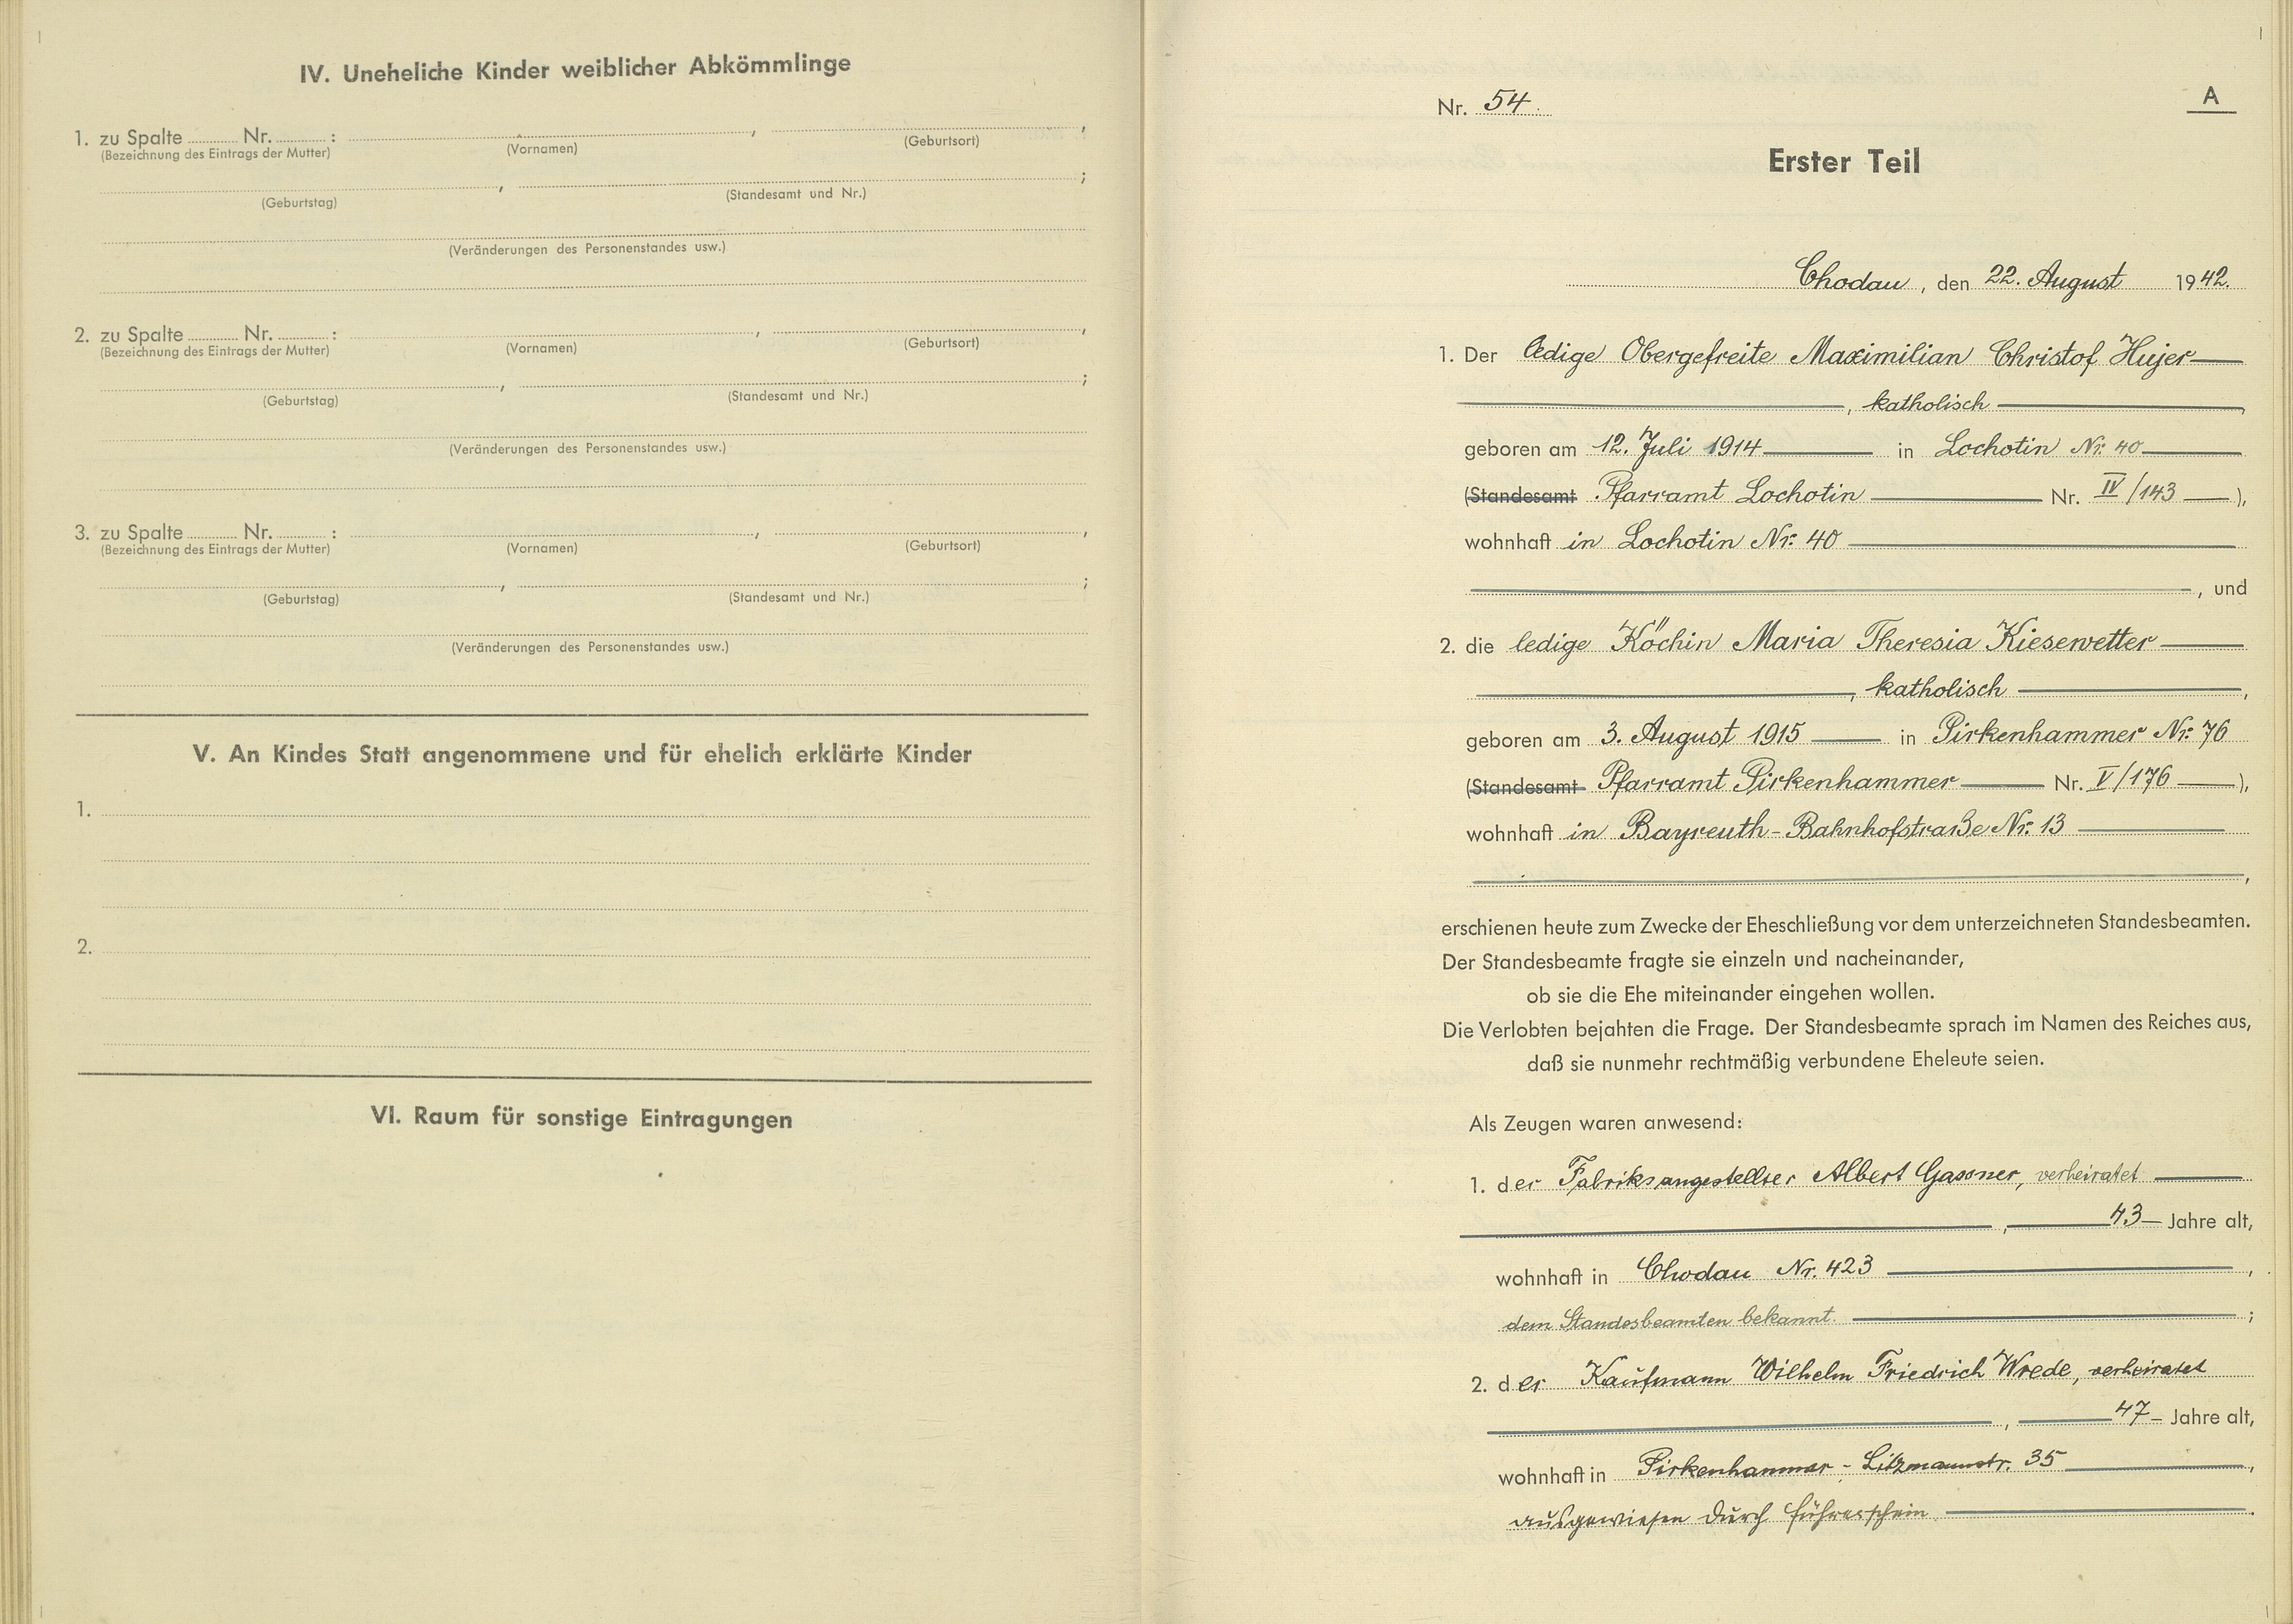 IV. Uneheliche Kinder weiblicher Abkömmlinge
1. zu Spalte ........ Nr. ........ : ........ , ........ ,
(Bezeichnung des Eintrags der Mutter) (Vornamen) (Geburtsort)
........ , ........ ;
(Geburtstag) (Standesamt und Nr.)
(Veränderungen des Personenstandes usw.)
2. zu Spalte ........ Nr. ........ : ........ , ........ ,
(Bezeichnung des Eintrags der Mutter) (Vornamen) (Geburtsort)
........ , ........ ;
(Geburtstag) (Standesamt und Nr.)
(Veränderungen des Personenstandes usw.)
3. zu Spalte ........ Nr. ........ : ........ , ........ ,
(Bezeichnung des Eintrags der Mutter) (Vornamen) (Geburtsort)
........ , ........ ;
(Geburtstag) (Standesamt und Nr.)
(Veränderungen des Personenstandes usw.)
V. An Kindes Statt angenommene und für ehelich erklärte Kinder
1.
2.
VI. Raum für sonstige Eintragungen
Nr. 54. A
Erster Teil
Chodau, den 22. August 1942.
1. Der ledige Obergefreite Maximilian Christof Hujer
, katholisch ,
geboren am 12. Juli 1914 in Lochotin Nr. 40
(Standesamt Pfarramt Lochotin Nr. IV/143 ),
wohnhaft in Lochotin Nr. 40
, und
2. die ledige Köchin Maria Theresia Kiesewetter
, katholisch ,
geboren am 3. August 1915 in Pirkenhammer Nr. 76
(Standesamt Pfarramt Pirkenhammer Nr. V/176 ),
wohnhaft in Bayreuth - Bahnhofstraße Nr. 13
,
erschienen heute zum Zwecke der Eheschließung vor dem unterzeichneten Standesbeamten.
Der Standesbeamte fragte sie einzeln und nacheinander,
ob sie die Ehe miteinander eingehen wollen.
Die Verlobten bejahten die Frage. Der Standesbeamte sprach im Namen des Reiches aus,
daß sie nunmehr rechtmäßig verbundene Eheleute seien.
Als Zeugen waren anwesend:
1. der Fabriksangestellter Albert Gassner, verheiratet
, 43 Jahre alt,
wohnhaft in Chodau Nr. 423 ,
dem Standesbeamten bekannt. ;
2. der Kaufmann Wilhelm Friedrich Wrede, verheiratet
, 47 Jahre alt,
wohnhaft in Pirkenhammer - Litzmannstr. 35 ,
ausgewiesen durch Führerschein .